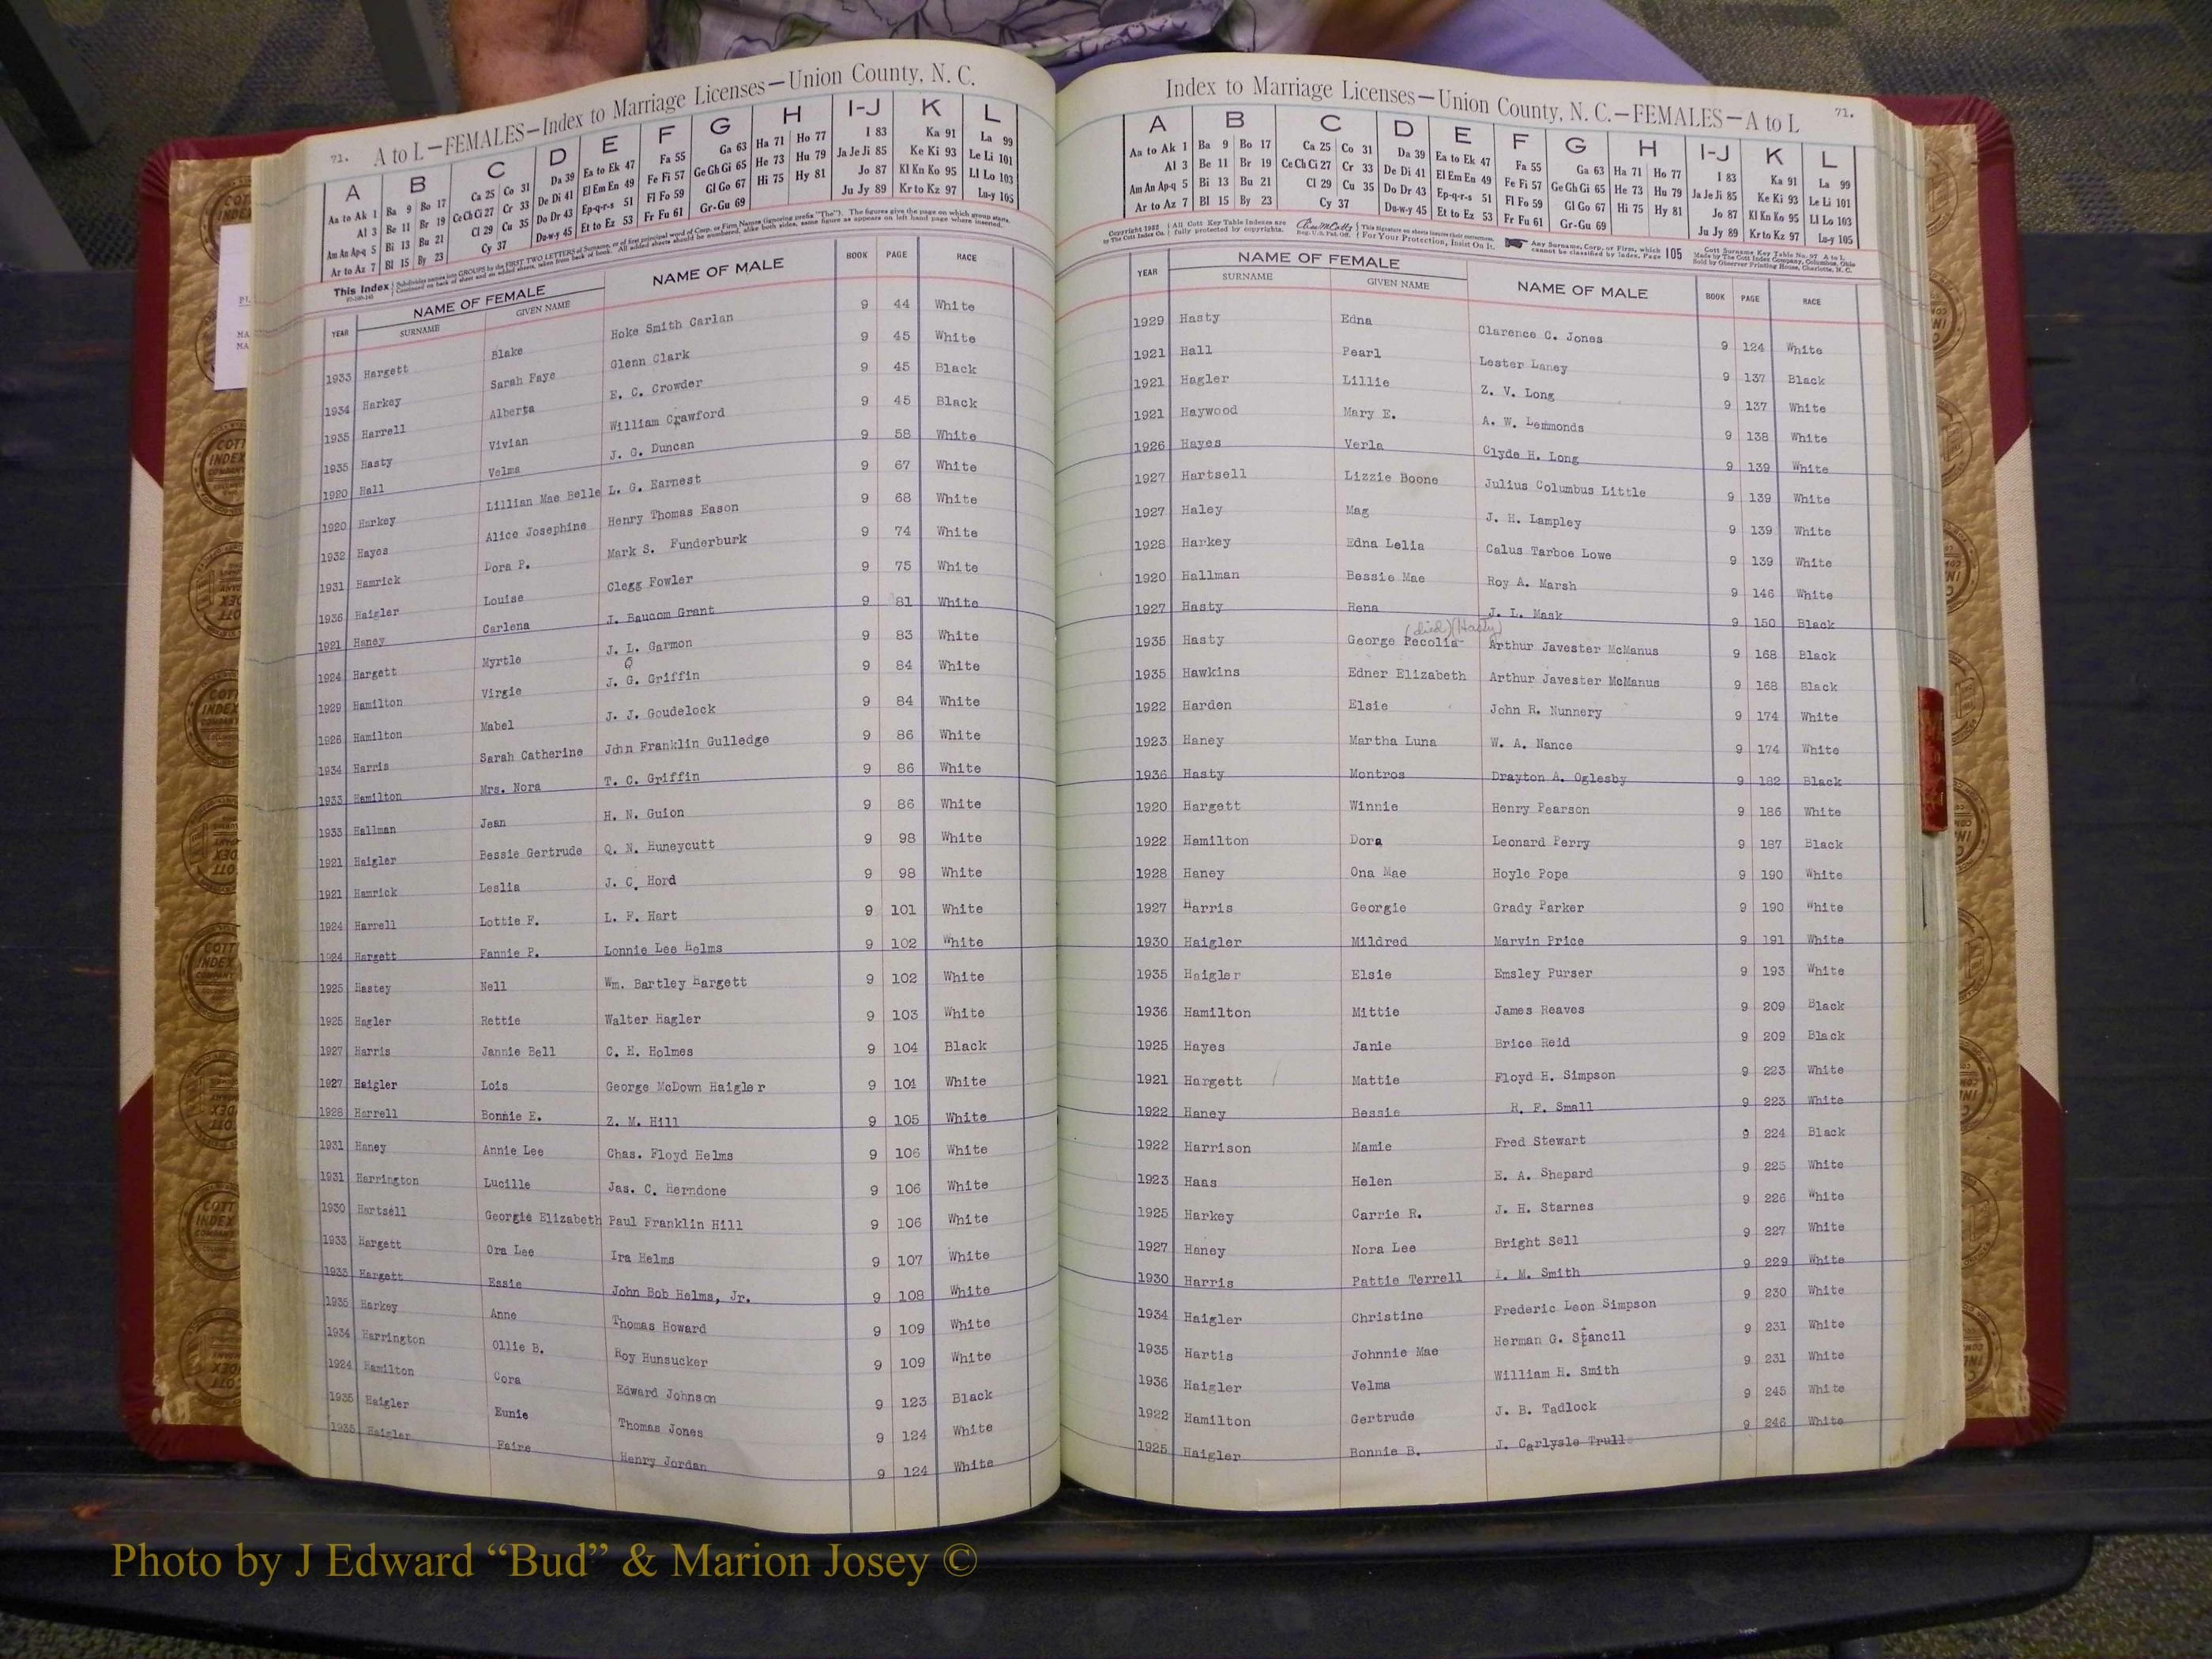 71. A to L—FEMALES—Index to Marriage Licenses—Union County, N. C.
A B C D E F G H I-J K L
Aa to Ak 1 Ba 9 Bo 17 Ca 25 Co 31 Da 39 Ea to Ek 47 Fa 55 Ga 63 Ha 71 Ho 77 I 83 Ka 91 La 99
Al 3 Be 11 Br 19 Ce Ch Ci 27 Cr 33 De Di 41 El Em En 49 Fe Fi 57 Ge Gh Gi 65 He 73 Hu 79 Ja Je Ji 85 Ke Ki 93 Le Li 101
Am An Ap-q 5 Bi 13 Bu 21 Cl 29 Cu 35 Do Dr 43 Ep-q-r-s 51 Fl Fo 59 Gl Go 67 Hi 75 Hy 81 Jo 87 Kl Kn Ko 95 Ll Lo 103
Ar to Az 7 Bl 15 By 23 Cy 37 Du-w-y 45 Et to Ez 53 Fr Fu 61 Gr-Gu 69 Ju Jy 89 Kr to Kz 97 Lu-y 105
This Index
YEAR NAME OF FEMALE SURNAME GIVEN NAME NAME OF MALE BOOK PAGE RACE
1933 Hargett Blake Hoke Smith Carlan 9 44 White
1934 Harkey Sarah Faye Glenn Clark 9 45 White
1935 Harrell Alberta E. C. Crowder 9 45 Black
1935 Hasty Vivian William Crawford 9 45 Black
1920 Hall Velma J. G. Duncan 9 58 White
1920 Harkey Lillian Mae Belle L. G. Earnest 9 67 White
1932 Hayes Alice Josephine Henry Thomas Eason 9 68 White
1931 Hamrick Dora P. Mark S. Funderburk 9 74 White
1936 Haigler Louise Clegg Fowler 9 75 White
1921 Haney Carlena J. Baucom Grant 9 81 White
1924 Hargett Myrtle J. L. Garmon 9 83 White
1929 Hamilton Virgie J. G. Griffin 9 84 White
1926 Hamilton Mabel J. J. Goudelock 9 84 White
1934 Harris Sarah Catherine John Franklin Gulledge 9 86 White
1933 Hamilton Mrs. Nora T. C. Griffin 9 86 White
1933 Hallman Jean H. N. Guion 9 86 White
1921 Haigler Bessie Gertrude Q. N. Huneycutt 9 98 White
1921 Hamrick Leslia J. C. Hord 9 98 White
1924 Harrell Lottie F. L. F. Hart 9 101 White
1924 Hargett Fannie P. Lonnie Lee Helms 9 102 White
1925 Hastey Nell Wm. Bartley Hargett 9 102 White
1925 Hagler Rettie Walter Hagler 9 103 White
1927 Harris Jannie Bell C. H. Holmes 9 104 Black
1927 Haigler Lois George McDown Haigler 9 104 White
1928 Harrell Bonnie E. Z. M. Hill 9 105 White
1931 Haney Annie Lee Chas. Floyd Helms 9 106 White
1931 Harrington Lucille Jas. C. Herndone 9 106 White
1930 Hartsell Georgie Elizabeth Paul Franklin Hill 9 106 White
1933 Hargett Ora Lee Ira Helms 9 107 White
1933 Hargett Essie John Bob Helms, Jr. 9 108 White
1935 Harkey Anne Thomas Howard 9 109 White
1934 Harrington Ollie B. Roy Hunsucker 9 109 White
1924 Hamilton Cora Edward Johnson 9 123 Black
1935 Haigler Eunie Thomas Jones 9 124 White
1935 Haigler Faire Henry Jordan 9 124 White
Index to Marriage Licenses—Union County, N. C.—FEMALES—A to L 71.
A B C D E F G H I-J K L
Aa to Ak 1 Ba 9 Bo 17 Ca 25 Co 31 Da 39 Ea to Ek 47 Fa 55 Ga 63 Ha 71 Ho 77 I 83 Ka 91 La 99
Al 3 Be 11 Br 19 Ce Ch Ci 27 Cr 33 De Di 41 El Em En 49 Fe Fi 57 Ge Gh Gi 65 He 73 Hu 79 Ja Je Ji 85 Ke Ki 93 Le Li 101
Am An Ap-q 5 Bi 13 Bu 21 Cl 29 Cu 35 Do Dr 43 Ep-q-r-s 51 Fl Fo 59 Gl Go 67 Hi 75 Hy 81 Jo 87 Kl Kn Ko 95 Ll Lo 103
Ar to Az 7 Bl 15 By 23 Cy 37 Du-w-y 45 Et to Ez 53 Fr Fu 61 Gr-Gu 69 Ju Jy 89 Kr to Kz 97 Lu-y 105
Copyright 1922 All Cott Key Table Indexes are This Signature on sheets insures their correctness. Any Surname, Corp. or Firm, which 105 Cott Surname Key Table No. 97 A to L
by The Cott Index Co. fully protected by copyrights. Reg. U.S. Pat. Off. For Your Protection, Insist On It. cannot be classified by Index, Page Made by The Cott Index Company, Columbus, Ohio
Sold by Observer Printing House, Charlotte, N. C.
YEAR NAME OF FEMALE SURNAME GIVEN NAME NAME OF MALE BOOK PAGE RACE
1929 Hasty Edna Clarence C. Jones 9 124 White
1921 Hall Pearl Lester Laney 9 137 Black
1921 Hagler Lillie Z. V. Long 9 137 White
1921 Haywood Mary E. A. W. Lemmonds 9 138 White
1926 Hayes Verla Clyde H. Long 9 139 White
1927 Hartsell Lizzie Boone Julius Columbus Little 9 139 White
1927 Haley Mag J. H. Lampley 9 139 White
1928 Harkey Edna Lelia Calus Tarboe Lowe 9 139 White
1920 Hallman Bessie Mae Roy A. Marsh 9 146 White
1927 Hasty Rena J. L. Mask 9 150 Black
(died) (Hasty)
1935 Hasty George Recolia Arthur Javester McManus 9 168 Black
1935 Hawkins Edner Elizabeth Arthur Javester McManus 9 168 Black
1922 Harden Elsie John R. Nunnery 9 174 White
1923 Haney Martha Luna W. A. Nance 9 174 White
1936 Hasty Montros Drayton A. Oglesby 9 182 Black
1920 Hargett Winnie Henry Pearson 9 186 White
1922 Hamilton Dora Leonard Perry 9 187 Black
1928 Haney Ona Mae Hoyle Pope 9 190 White
1927 Harris Georgie Grady Parker 9 190 White
1930 Haigler Mildred Marvin Price 9 191 White
1935 Haigler Elsie Emsley Purser 9 193 White
1936 Hamilton Mittie James Reaves 9 209 Black
1925 Hayes Janie Brice Reid 9 209 Black
1921 Hargett Mattie Floyd H. Simpson 9 223 White
1922 Haney Bessie R. F. Small 9 223 White
1922 Harrison Mamie Fred Stewart 9 224 Black
1923 Haas Helen E. A. Shepard 9 225 White
1925 Harkey Carrie R. J. H. Starnes 9 226 White
1927 Haney Nora Lee Bright Sell 9 227 White
1930 Harris Pattie Terrell I. M. Smith 9 229 White
1934 Haigler Christine Frederic Leon Simpson 9 230 White
1935 Hartis Johnnie Mae Herman G. Stancil 9 231 White
1936 Haigler Velma William H. Smith 9 231 White
1922 Hamilton Gertrude J. B. Tadlock 9 245 White
1925 Haigler Bonnie B. J. Carlysle Trull 9 246 White
Photo by J Edward “Bud” & Marion Josey ©